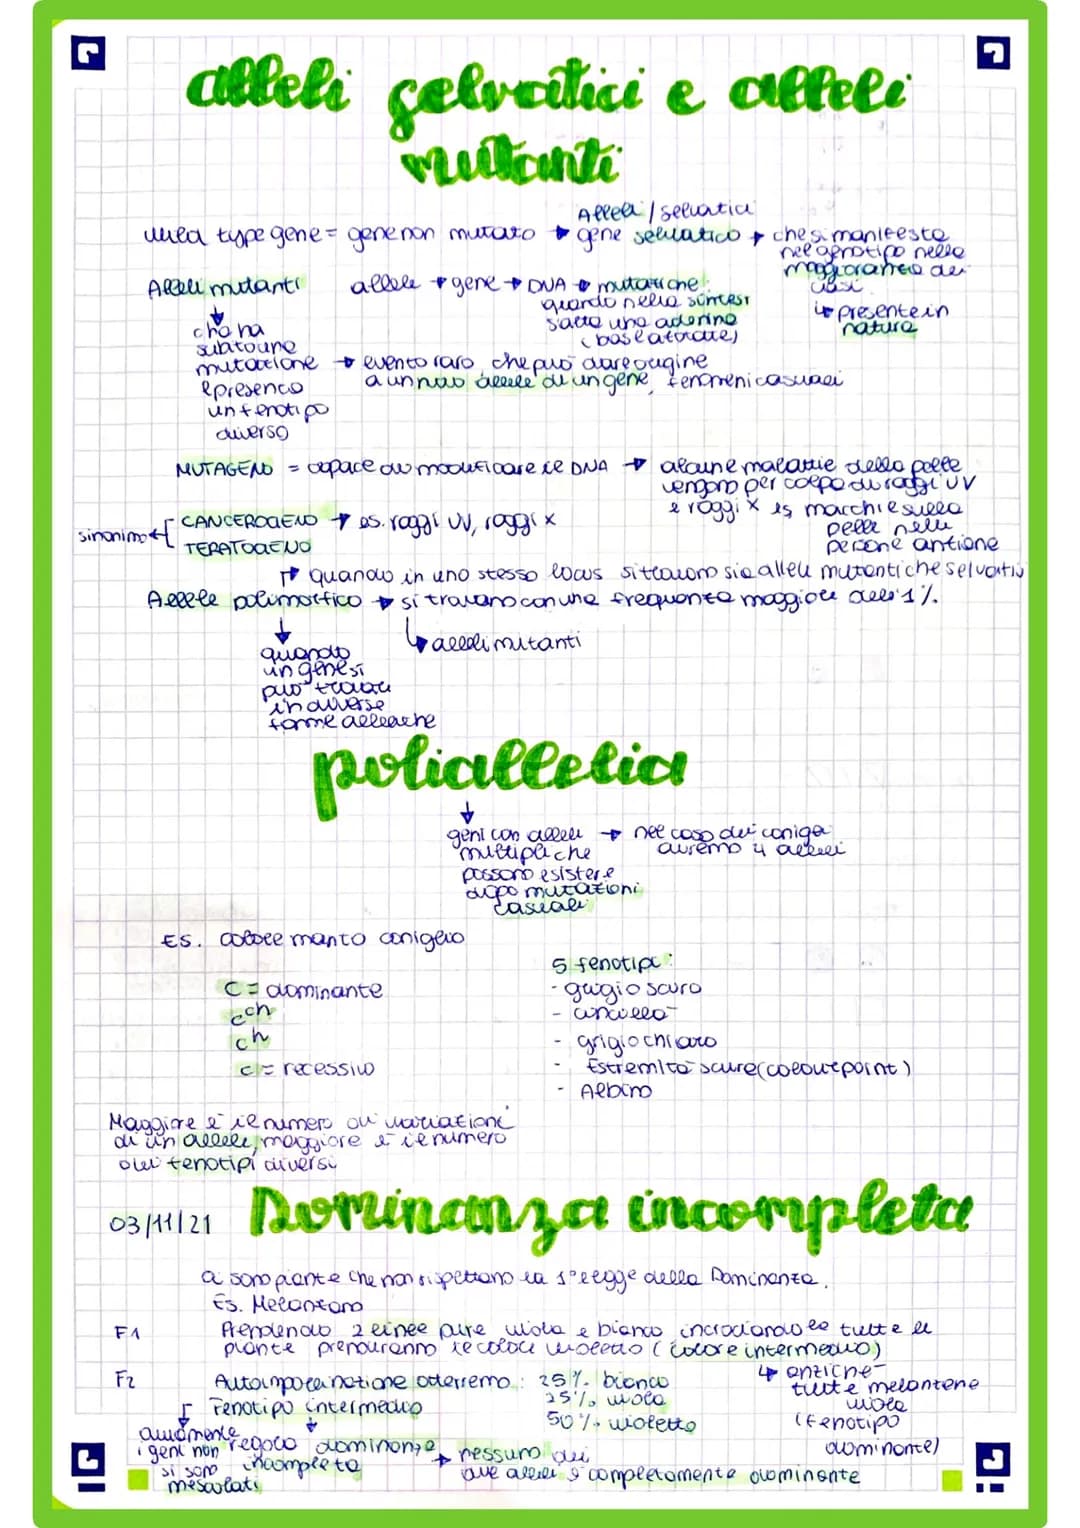 alleli selvatici e alleli
mutanti
Alleli / selvatici
wild type gene = gene non mutato → gene selvatico → che si manifesta
nel genotipo nella
maggioranza dei
casi
↳ presente in
natura
Alleli mutanti allele → gene → DNA → mutazione:
quando nella sintesi
salta una adenina
(base azotate)
che ha
subito una
mutazione → evento raro, che può dare origine
e presenta a un nuovo allele di un gene, fenomeni casuali
un fenotipo
diverso
MUTAGENO = capace di modificare il DNA → alcune malattie della pelle
vengono per colpa di raggi UV
e raggi x es marchie sulla
pelle nelle
persone anziane
sinonimo
CANCEROGENO → es. raggi UV, raggi x
TERATOGENO
quando in uno stesso locus si trovano sia alleli mutanti che selvatici
Allele polimorfico → si trovano con una frequenza maggiore dell'1%.
↳ alleli mutanti
quando
un gene si
può trovare
in diverse
forme alleliche
poliallelia
geni con alleli → nel caso dei conigli
multipli che avremo 4 alleli
possono esistere
dopo mutazioni
casuali
ES. colore manto coniglio
C = dominante
cch
ch
c = recessivo
5 fenotipi:
- grigio scuro
- cincillà
- grigio chiaro
- Estremità scure (colourpoint)
- Albino
Maggiore è il numero di variazioni
di un allele, maggiore è il numero
dei fenotipi diversi
03/11/21 Dominanza incompleta
Ci sono piante che non rispettano la 1° legge della Dominanza.
Es. Melanzana
F1 Prendendo 2 linee pure viola e bianco, incrociandole tutte le
piante prenderanno il colore violetto (colore intermedio)
↳ anziché
tutte melanzane
viola
(fenotipo
dominante)
F2 Autoimpollinazione otterremo: 25% bianco
25% viola
50% violetto
Fenotipo intermedio
ovviamente
i geni non
si sono
mescolati
regola dominanza
incompleta → nessuno dei
due alleli è completamente dominante